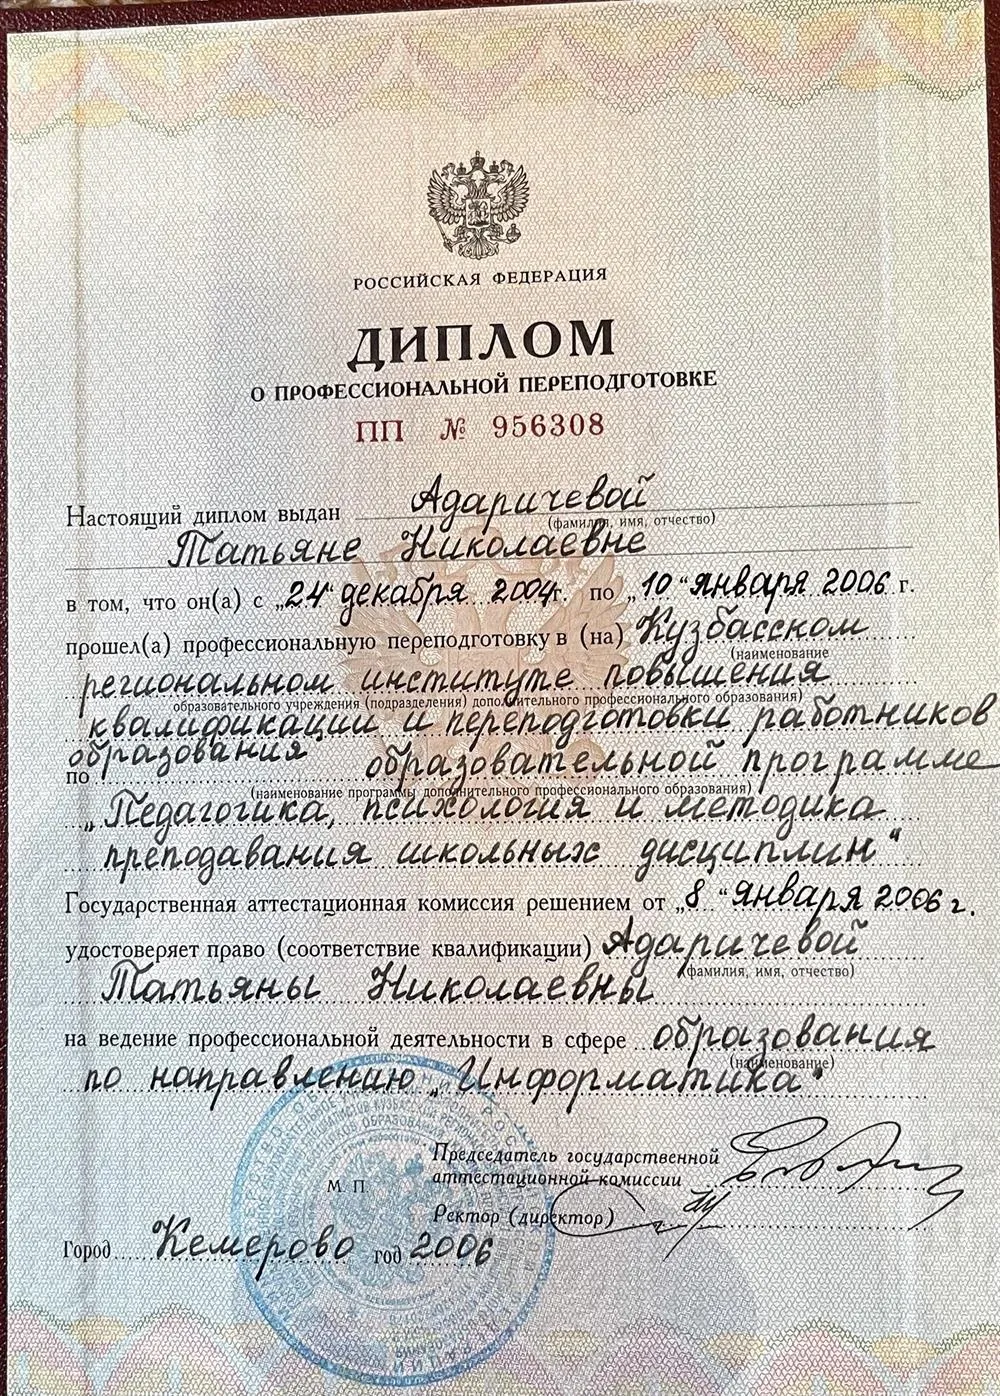 РОССИЙСКАЯ ФЕДЕРАЦИЯ
ДИПЛОМ
О ПРОФЕССИОНАЛЬНОЙ ПЕРЕПОДГОТОВКЕ
ПП № 956308
Настоящий диплом выдан Адаричевой
(фамилия, имя, отчество)
Татьяне Николаевне
в том, что он(а) с „24“ декабря 2004г. по „10“ января 2006 г.
прошел(а) профессиональную переподготовку в (на) Кузбасском
(наименование
региональном институте повышения
образовательного учреждения (подразделения) дополнительного профессионального образования)
квалификации и переподготовки работников
образования
по образовательной программе
(наименование программы дополнительного профессионального образования)
„Педагогика, психология и методика
преподавания школьных дисциплин“
Государственная аттестационная комиссия решением от „8“ января 2006 г.
удостоверяет право (соответствие квалификации) Адаричевой
(фамилия, имя, отчество)
Татьяны Николаевны
на ведение профессиональной деятельности в сфере образования
(наименование)
по направлению „Информатика“
Председатель государственной
аттестационной комиссии
М. П.
Ректор (директор)
Город Кемерово год 2006